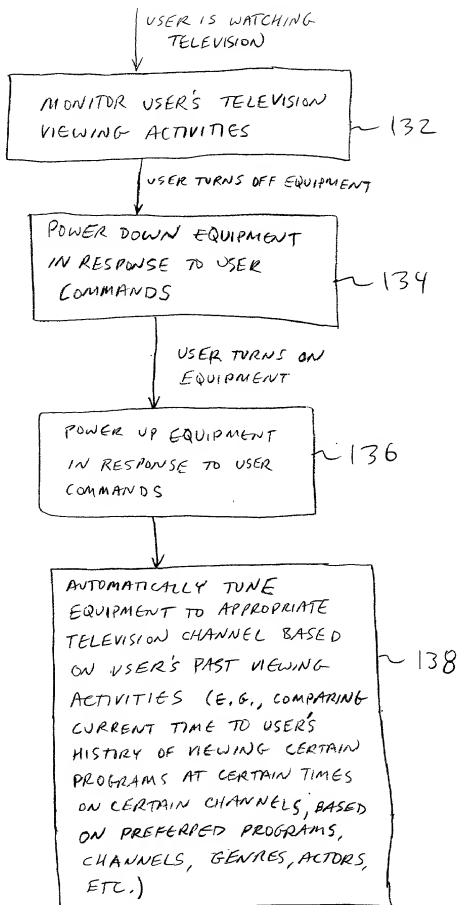 USER IS WATCHING
TELEVISION
MONITOR USER'S TELEVISION
VIEWING ACTIVITIES
132
USER TURNS OFF EQUIPMENT
POWER DOWN EQUIPMENT
IN RESPONSE TO USER
COMMANDS
134
USER TURNS ON
EQUIPMENT
POWER UP EQUIPMENT
IN RESPONSE TO USER
COMMANDS
136
AUTOMATICALLY TUNE
EQUIPMENT TO APPROPRIATE
TELEVISION CHANNEL BASED
ON USER'S PAST VIEWING
ACTIVITIES (E.G., COMPARING
CURRENT TIME TO USER'S
HISTORY OF VIEWING CERTAIN
PROGRAMS AT CERTAIN TIMES
ON CERTAIN CHANNELS, BASED
ON PREFERRED PROGRAMS,
CHANNELS, GENRES, ACTORS,
ETC.)
138